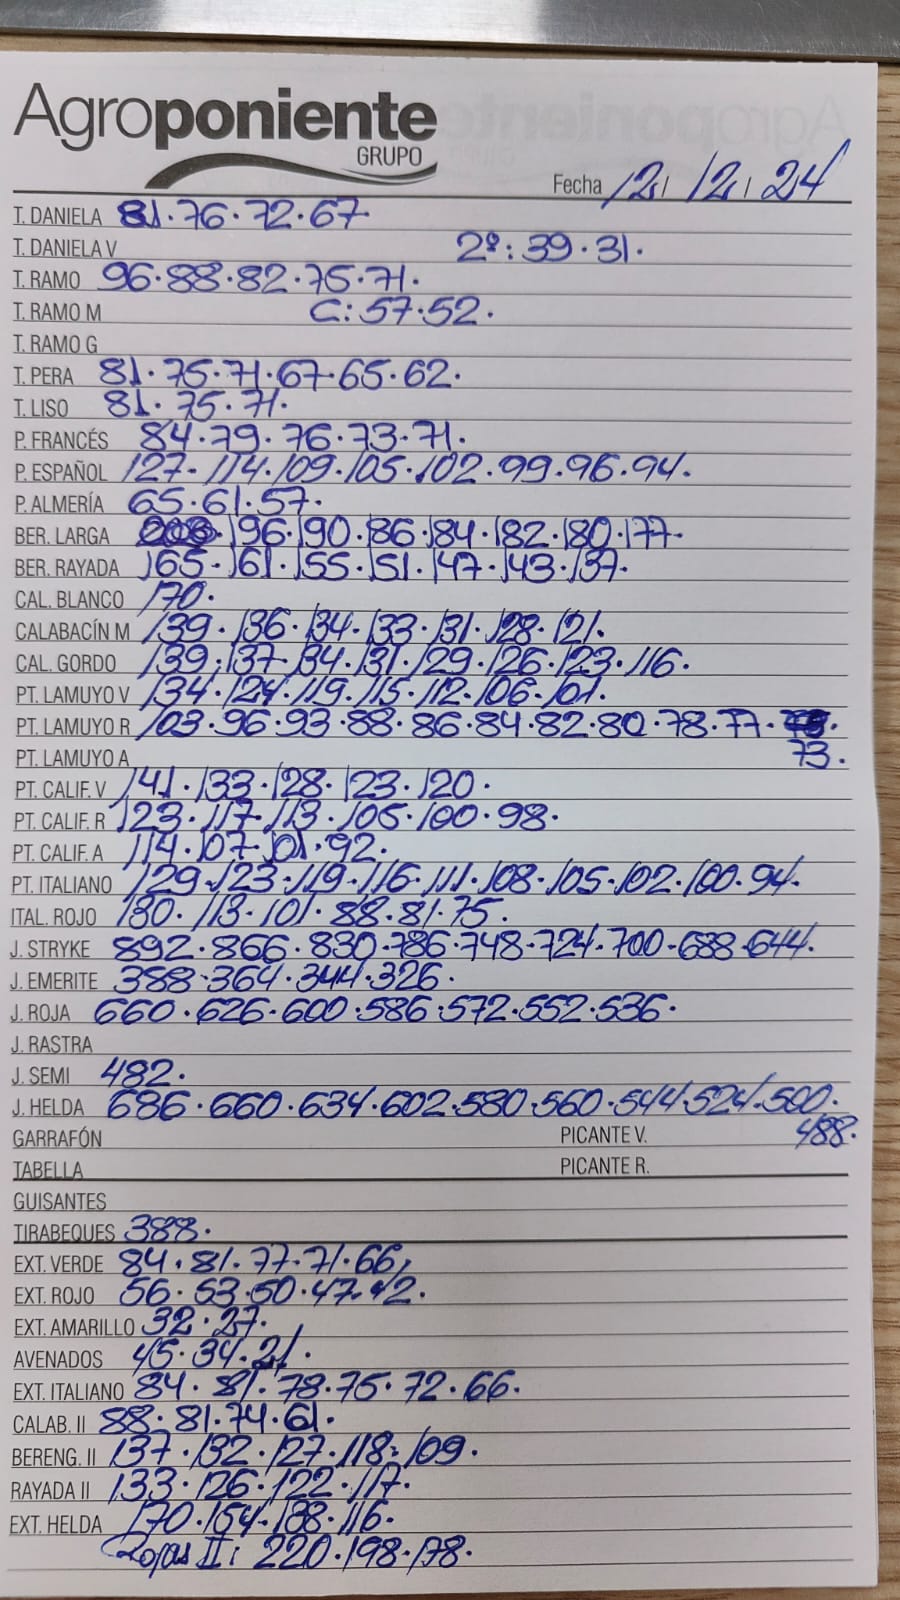 Agroponiente
GRUPO
Fecha 12 / 12 / 24
T. DANIELA 81·76·72·67
T. DANIELA V 2º: 39·31·
T. RAMO 96·88·82·75·71·
T. RAMO M C: 57·52·
T. RAMO G
T. PERA 81·75·71·67·65·62·
T. LISO 81·75·71·
P. FRANCÉS 84·79·76·73·71·
P. ESPAÑOL 127·114·109·105·102·99·96·94·
P. ALMERÍA 65·61·57·
BER. LARGA 196·190·186·184·182·180·177·
BER. RAYADA 165·161·155·151·147·143·137·
CAL. BLANCO 170·
CALABACÍN M 139·136·134·133·131·128·121·
CAL. GORDO 139·137·134·131·129·126·123·116·
PT. LAMUYO V 134·124·119·115·112·106·101·
PT. LAMUYO R 103·96·93·88·86·84·82·80·78·77·
PT. LAMUYO A 73·
PT. CALIF. V 141·133·128·123·120·
PT. CALIF. R 123·117·113·105·100·98·
PT. CALIF. A 114·107·101·92·
PT. ITALIANO 129·123·119·116·111·108·105·102·100·94·
ITAL. ROJO 130·113·101·88·81·75·
J. STRYKE 892·866·830·786·748·724·700·688·644·
J. EMERITE 388·364·344·326·
J. ROJA 660·626·600·586·572·552·536·
J. RASTRA
J. SEMI 482·
J. HELDA 686·660·634·602·580·560·544·524·500·
GARRAFÓN PICANTE V. 488·
TABELLA PICANTE R.
GUISANTES
TIRABEQUES 388·
EXT. VERDE 84·81·77·71·66,
EXT. ROJO 56·53·50·47·42·
EXT. AMARILLO 32·27·
AVENADOS 45·34·21·
EXT. ITALIANO 84·81·78·75·72·66·
CALAB. II 88·81·74·61·
BERENG. II 137·132·127·118·109·
RAYADA II 133·126·122·117·
EXT. HELDA 170·154·138·116·
Rojas II: 220·198·178·